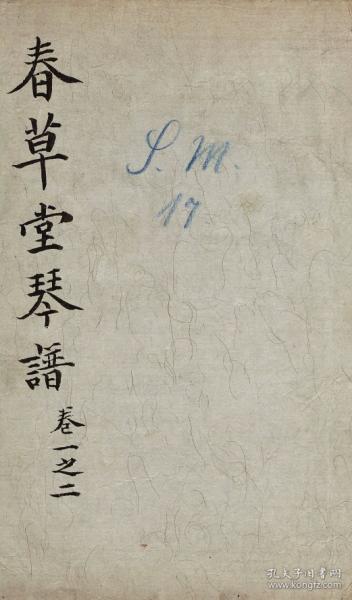 春草堂琴譜
卷一之二
S. M.
17
孔夫子旧书网
www.kongfz.com